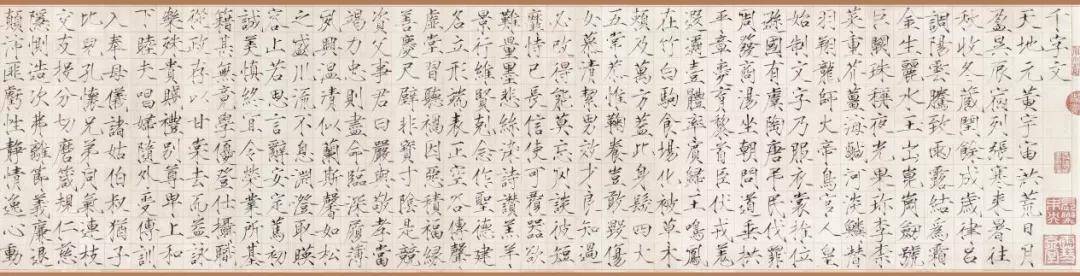 千字文
天地元黄宇宙洪荒日月
盈昃辰宿列張寒来暑往
秋收冬蔵閏餘成歳律呂
調陽雲騰致雨露結為霜
金生麗水玉出崑崗劔號
巨闕珠稱夜光果珎李柰
菜重芥薑海鹹河淡鱗潜
羽翔龍師火帝鳥官人皇
始制文字乃服衣裳推位
遜國有虞陶唐弔民伐罪
周發商湯坐朝問道垂拱
平章愛育黎首臣伏戎羌
遐邇壹體率賓歸王鳴鳳
在竹白駒食場化被草木
頼及萬方盖此身髮四大
五常恭惟鞠養豈敢毀傷
女慕清絜男效才良知過
必改得能莫忘罔談彼短
靡恃己長信使可覆器欲
難量墨悲絲染詩讃羔羊
景行維賢剋念作聖德建
名立形端表正空谷傳聲
虚堂習聽禍因惡積福緣
善慶尺璧非寶寸陰是競
資父事君曰嚴與敬孝當
竭力忠則盡命臨深履薄
夙興温清似蘭斯馨如松
之盛川流不息淵澄取暎
容止若思言辭安定篤初
誠美慎終宜令榮業所基
籍甚無竟學優登仕攝職
從政存以甘棠去而益詠
樂殊貴賤禮別尊卑上和
下睦夫唱婦随外受傅訓
入奉母儀諸姑伯叔猶子
比兒孔懐兄弟同氣連枝
交友投分切磨箴規仁慈
隱惻造次弗離節義廉退
顛沛匪虧性静情逸心動